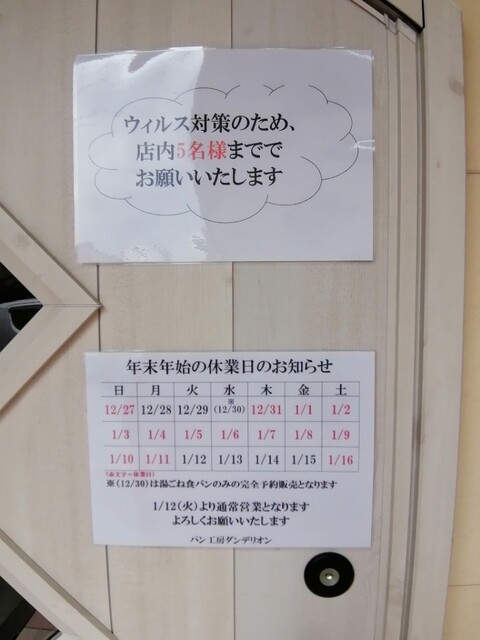 ウィルス対策のため、
店内5名様までで
お願いいたします
年末年始の休業日のお知らせ
日 月 火 水 木 金 土
12/27 12/28 12/29 ※(12/30) 12/31 1/1 1/2
1/3 1/4 1/5 1/6 1/7 1/8 1/9
1/10 1/11 1/12 1/13 1/14 1/15 1/16
(赤文字=休業日)
※(12/30)は湯ごね食パンのみの完全予約販売となります
1/12(火)より通常営業となります
よろしくお願いいたします
パン工房ダンデリオン